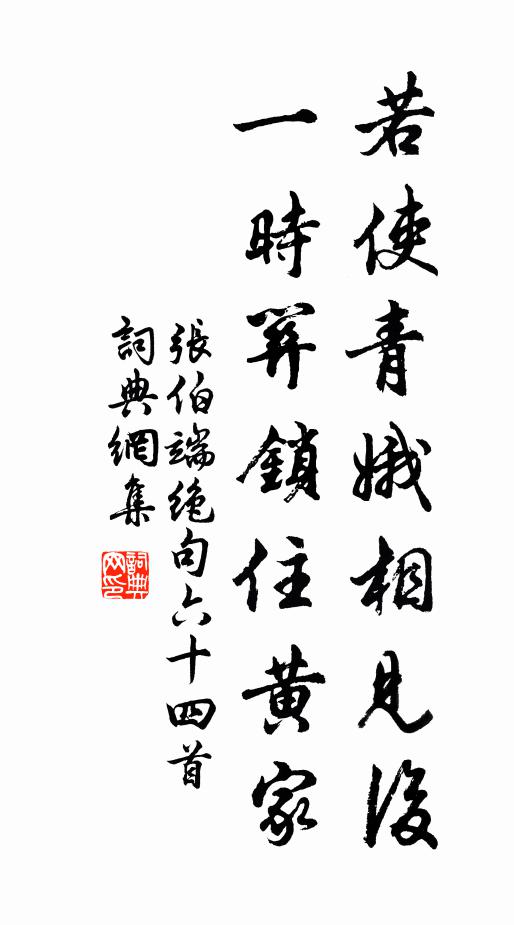 若使青娥相見後
一時關鎖住黄家
張伯端絶句六十四首
詞典網集
詞典
网印